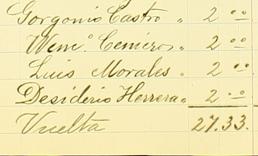 Gorgonio Castro " 2 00
Wenº. Cenicros " 2 00
Luis Morales " 2 00
Desiderio Herrera " 2 00
Vuelta 27.33.